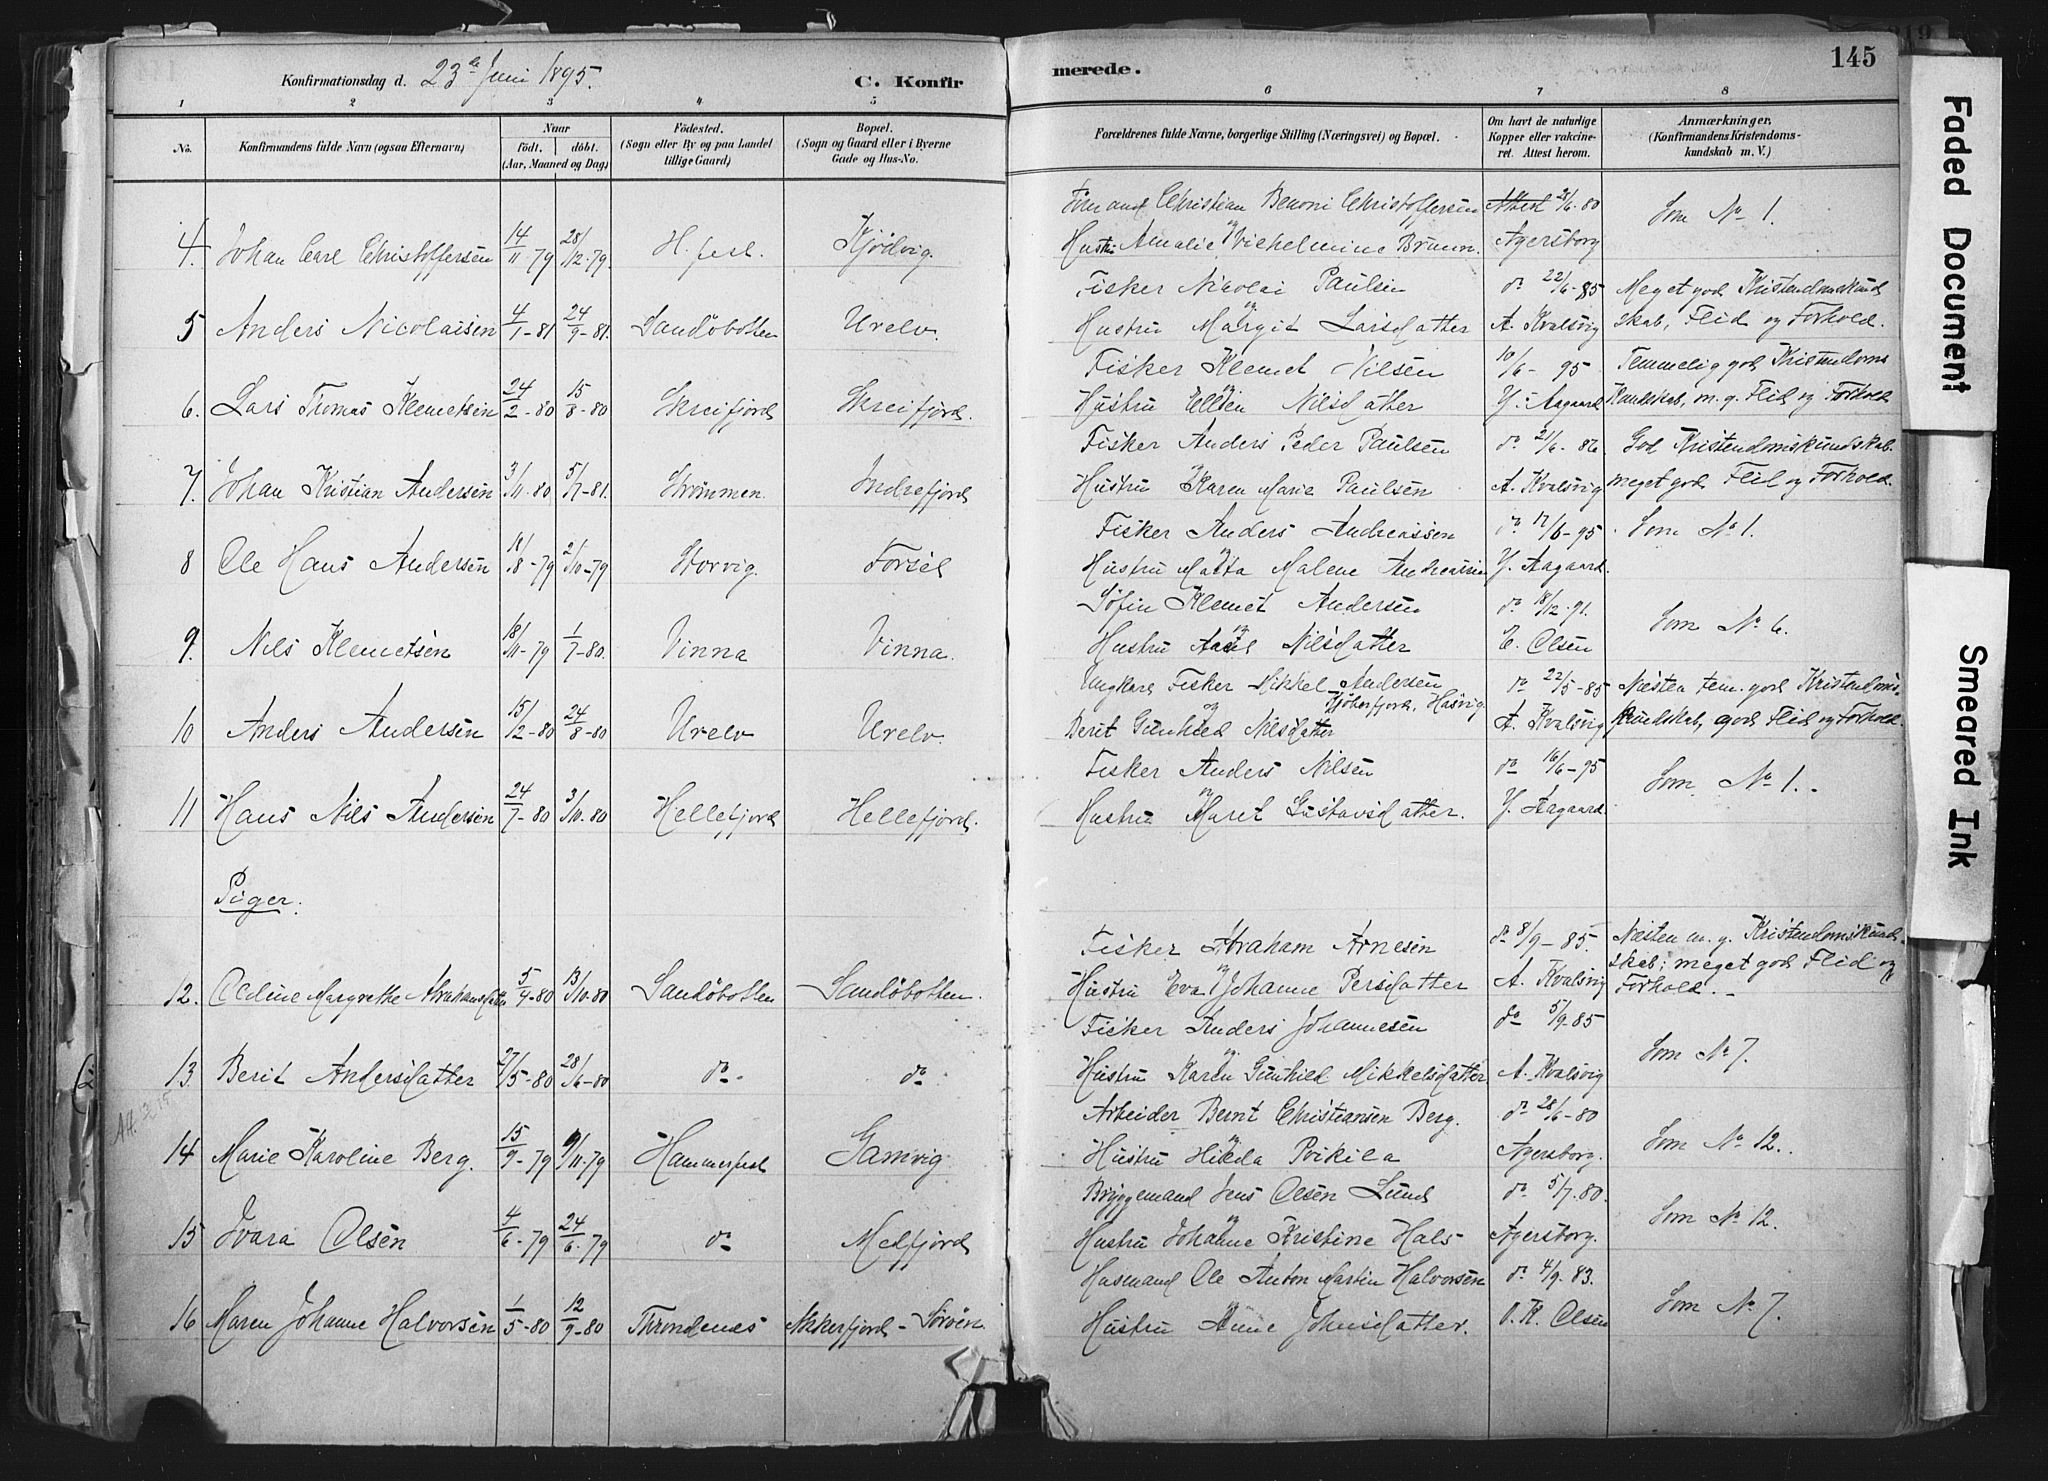 145
Konfirmationsdag d. 23de Juni 1895.
C. Konfir
merede.
1 2 3 4 5 6 7 8
No.
Konfirmandens fulde Navn (ogsaa Efternavn)
Naar
födt. döbt.
(Aar, Maaned og Dag)
Födested.
(Sogn eller By og paa Landet
tillige Gaard)
Bopæl.
(Sogn og Gaard eller i Byerne
Gade og Hus-No.
Forældrenes fulde Navne, borgerlige Stilling (Næringsvei) og Bopæl.
Om havt de naturlige
Kopper eller vakcine-
ret. Attest herom.
Anmærkninger.
(Konfirmandens Kristendoms-
kundskab m. V.)
Christian Benoni Christoffersen Attest 28/6-80
4. Johan Carl Christoffersen 14/11-79 28/12-79. H.fest. Kjödvig. og Hustru Amalie Vilhelmine Bruun. Agersborg Som No 1.
Fisker Nicolai Paulsen do 22/6-85 Meget god Kristendomskund
5 Anders Nicolaisen 4/7-81 24/9-81. Sandöbotten Urelv. og Hustru Margit Larsdatter A. Kvalsvig skab, Flid og Forhold.
Fisker Klemet Nilsen 10/6-95 Temmelig god Kristendoms
6. Lars Thomas Klemetsen 24/2-80 15/8-80 Skreifjord Skreifjord. og Hustru Ellen Nilsdatter Y. Aagaard Kundskab, m. g. Flid og Forhold
Fisker Anders Peder Paulsen do 21/6-86 God Kristendomskundskab.
7. Johan Kristian Andersen 3/11-80 5/7-81. Strömmen. Indrefjord og Hustru Karen Marie Paulsen A. Kvalsvig meget god Flid og Forhold.
Fisker Anders Andreassen do 17/6-95 Som No 1.
8 Ole Hans Andersen 18/8-79 2/10-79 Storvig. Forsöl og Hustru Marta Malene Andreassen Y. Aagaard.
Söfin Klemet Andersen do 18/12-91.
9. Nils Klemetsen 18/11-79 1/7-80. Vinna Vinna. og Hustru Nilsdatter E. Olsen Som No 6.
Ungkarl Fisker Mikkel Andersen do 22/5-85 Næsten tem. god Kristendoms-
Hasvig.
10 Anders Andersen 15/12-80 24/8-80 Urelv Urelv. og Berit Gunhild Nilsdatter A. Kvalsvig kundskab, god Flid og Forhold.
Fisker Anders Nilsen do 16/6-95
11 Hans Nils Andersen 24/7-80 3/10-80 Hellefjord Hellefjord. og Hustru Maret Gustavsdatter. Y. Aagaard. Som No 1.
Piger.
Fisker Abraham Arnesen do 8/9-85. Næsten m. g. Kristendomskund-
12. Oldine Margrethe Abrahamsdatter 5/9-80 13/10-80 Sandöbotten Sandöbotten. og Hustru Eva Johanne Persdatter A. Kvalsvig skab; meget god Flid og
Forhold.
Fisker Anders Johannesen do 5/9-85
13. Berit Andersdatter 27/5-80 28/6-80 do do og Hustru Karen Gunhild Mikkelsdatter A. Kvalsvig Som No 7.
Arbeider Bernt Christiansen Berg. do 28/6-80
14 Marie Karoline Berg. 15/9-79 9/11-79 Hammerfest Gamvig. og Hustru Hilda Agersborg. Som No 12.
Bryggemand Jens Olsen Lund do 5/7-80.
15 Ivara Olsen 4/6-79 24/6-79 do Melfjord og Hustru Johanne Kristine Hals Agersborg. Som No 12.
Husmand Ole Anton Martin Halvorsen do 4/9-83.
16 Maren Johanne Halvorsen 1/5-80 12/9-80 Throndenes Akkerfjord-Söröen. Hustru Anne Johnsdatter. O. K. Olsen Som No 7.
Faded Document
Smeared Ink